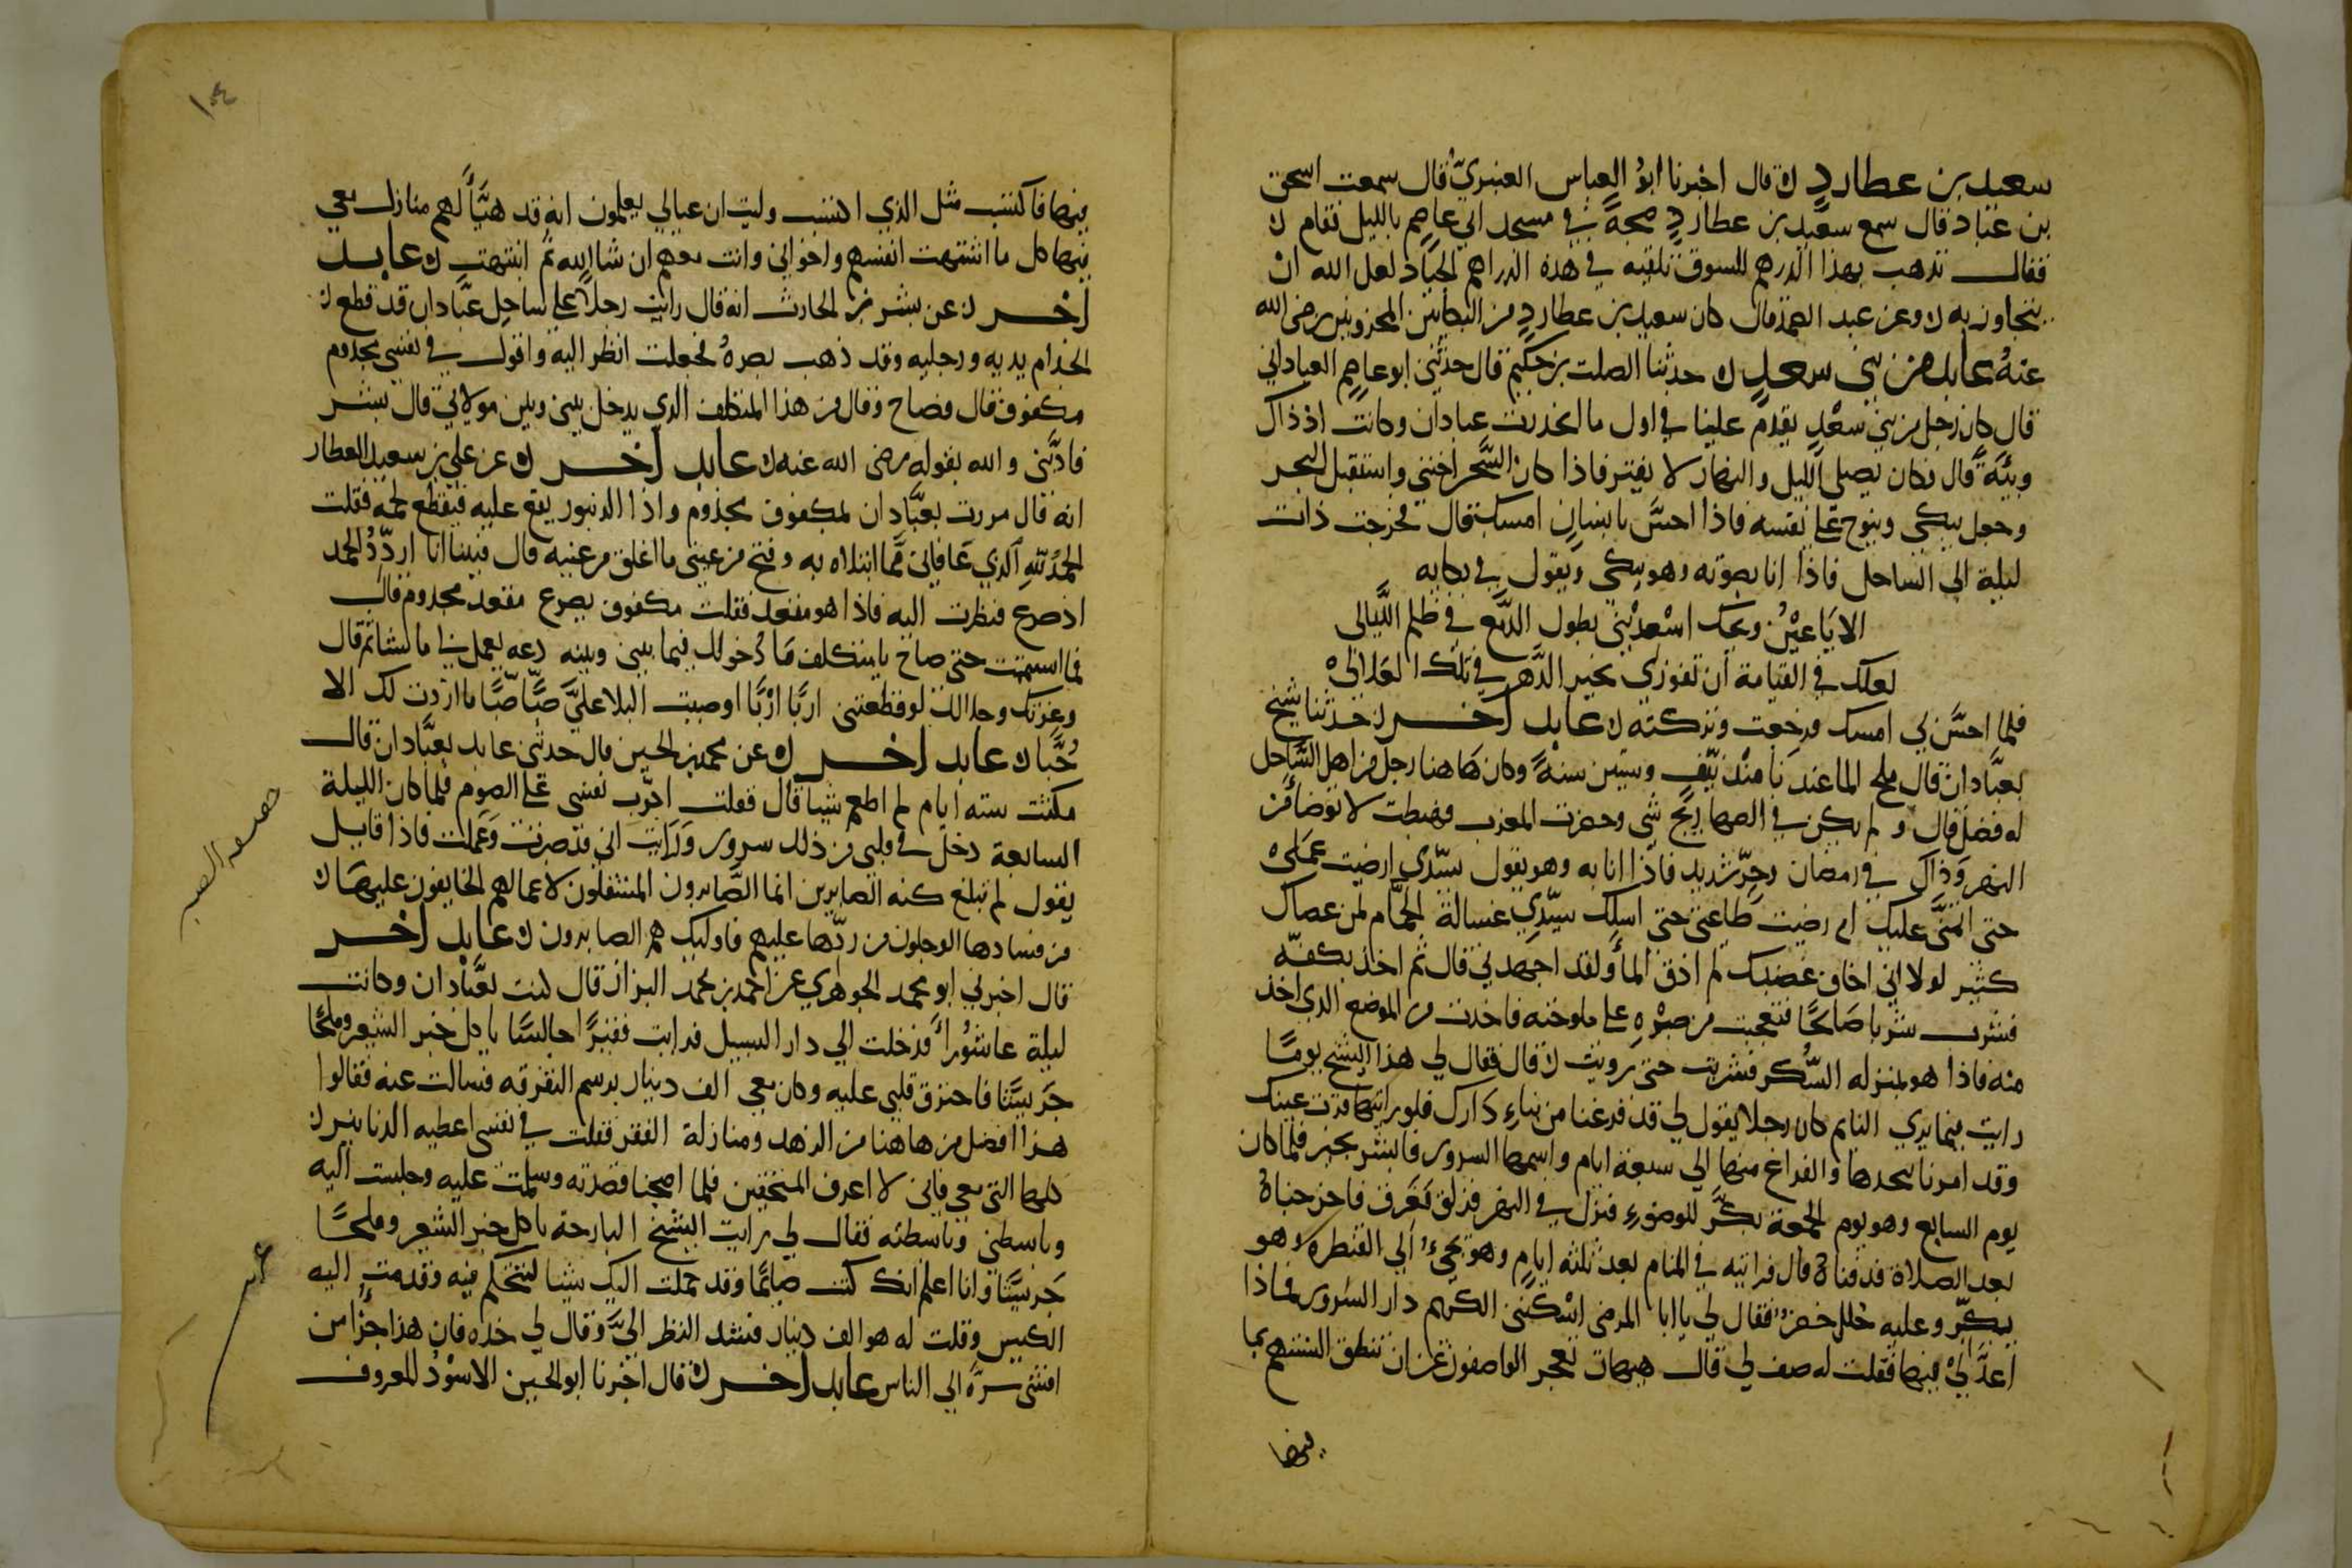 سعيد بن عطارد ٥ قال اخبرنا ابو العباس العنبري قال سمعت اسحق
بن عباد قال سمع سعيد بن عطارد في مسجد ابي عاصم بالليل فقام ٥
فقال تذهب بهذا الدرهم للسوق تلقيه في هذه الدراهم الجياد لعل الله ان
يتجاوز به ٥ وعن عبد الصمد قال كان سعيد بن عطارد من البكايين المحزونين رضي الله
عنه عابد من بني سعد ٥ حدثنا الصلت بن حكيم قال حدثني ابو عاصم العباداني
قال كان رجل من بني سعد يقدم علينا في اول ما اتخذت عبادان وكانت اذ ذاك
وبيّة قال فكان يصلي الليل والنهار لا يفتر فاذا كان السحر احتبى واستقبل البحر
وجعل يبكي وينوح على نفسه فاذا احسّ بانسان امسك قال فخرجت ذات
ليلة الى الساحل فاذا انا بصوته وهو يبكي ويقول في بكايه
الا يا عين ويحك اسعديني بطول الدمع في ظلم الليالي
لعلك في القيامة ان تفوزي بخير الدهر في تلك العلالي
فلما احسّ بي امسك فرجعت وتركته ٥ عابد اخر ٥ حدثنا شيخ
بعبّادان قال ملح الما عندنا منذ نيّف وستين سنة وكان هاهنا رجل من اهل الساحل
له فضل قال ولم يكن في الصهاريج شي وحضرت المغرب فهبطت لاتوضأ من
النهر وذاك في رمضان وحرّ شديد فاذا انا به وهو يقول سيّدي ارضيت عملي
حتى اتمنّى عليك ام رضيت طاعتي حتى اسلك سيّدي غسالة الحمّام لمن عصاك
كثير لولا اني اخاف غضبك لم اذق الما ولقد اجهدني قال ثم اخذ بكفّه
فشرب شربا صالحًا فتعجبت من صبره على ملوحته فاخذت من الموضع الذي اخذ
منه فاذا هو بمنزله السّكر فشربت حتى رويت ٥ قال فقال لي هذا الشيخ يومًا
رايت فيما يري النايم كان رجلا يقول لي قد فرغنا من بناء دارك فلو رايتها قرّت عينك
وقد امرنا بنجدها والفراغ منها الى سبعة ايام واسمها السرور فابشر بخير فلما كان
يوم السابع وهو يوم الجمعة بكّر للوضوء فنزل في النهر فزلق فغرق فاخرجناه
بعد الصلاة فدفناه قال فرايته في المنام بعد ثلثه ايام وهو يجيء الى القنطره وهو
يكبّر وعليه حُلل خضر فقال لي يا ابا المرضى اسكنني الكريم دار السرور فماذا
اعدّ لي فيها فقلت له صف لي قال هيهات يعجز الواصفون عن ان تنطق السنتهم بما
فيها
١٠٤
فيها فاكتسب مثل الذي اكتسب وليت ان عيالي يعلمون انه قد هيّأ لهم منازل معي
فيها كل ما اشتهت انفسهم واخواني وانت معهم ان شا الله ثم انتبهت ٥ عابد
اخر ٥ عن بشر بن الحارث انه قال رايت رجلا على ساحل عبّادان قد قطع ٥
الجذام يديه ورجليه وقد ذهب بصره فجعلت انظر اليه واقول في نفسي مجذوم
مكفوف قال فصاح وقال من هذا المتكلف الذي يدخل بيني وبين مولاي قال بشر
فادّبني والله بقوله رضي الله عنه ٥ عابد اخر ٥ عن علي بن سعيد العطار
انه قال مررت بعبّادان بمكفوف مجذوم واذا الزنبور يقع عليه فيقطع لحمه فقلت
الحمد لله الذي عافاني مما ابتلاه به وفتح من عيني ما اغلق من عينيه قال فبينا انا اردّد الحمد
اذ صرع فنظرت اليه فاذا هو مقعد فقلت مكفوف يصرع مقعد مجذوم قال
فما استتممت حتى صاح يا متكلف ما دخولك فيما بيني وبينه دعه يعمل بي ما يشا ثم قال
وعزتك وجلالك لو قطعتني اربًا اربًا او صببت البلا عليّ صبًّا صبًّا ما ازددت لك الا
حُبًّا ٥ عابد اخر ٥ عن محمد بن الحسين قال حدثني عابد بعبّادان قال
مكثت سته ايام لم اطعم شيا قال فقلت اجرّب نفسي على الصوم فلما كان الليلة
السابعة دخل في قلبي من ذلك سرور ورايت اني قد صبرت وعملت فاذا قايل
يقول لم تبلغ كنه الصابرين انما الصّابرون المستقلون لاعمالهم الخايفون عليها ٥
من فسادها الوجلون من ردّها عليهم فاوليك هم الصابرون ٥ عابد اخر
قال اخبرني ابو محمد الجوهري عن احمد بن محمد البزاز قال كنت بعبّادان وكانت
ليلة عاشورا فدخلت الى دار السبيل فرايت فقيرًا جالسًا ياكل خبز الشعير وملحًا
جريشًا فاحترق قلبي عليه وكان معي الف دينار برسم التفرقه فسالت عنه فقالوا
هذا افضل من هاهنا من الزهد ومنازلة الفقر فقلت في نفسي اعطيه الدنانير ٥
كلها التي معي فاني لا اعرف المستحقين فلما اصبحنا قصدته وسلمت عليه وجلست اليه
وباسطني وباسطته فقال لي رايت الشيخ البارحة ياكل خبز الشعير وملحًا
جريشًا وانا اعلم انك كنت صايمًا وقد حملت اليك شيا لتتحكم فيه وقدمت اليه
الكيس وقلت له هو الف دينار فشد النظر اليّ وقال لي خذه فان هذا جزأ من
افشى سرّه الى الناس عابد اخر ٥ قال اخبرنا ابو الحسين الاسود المعروف